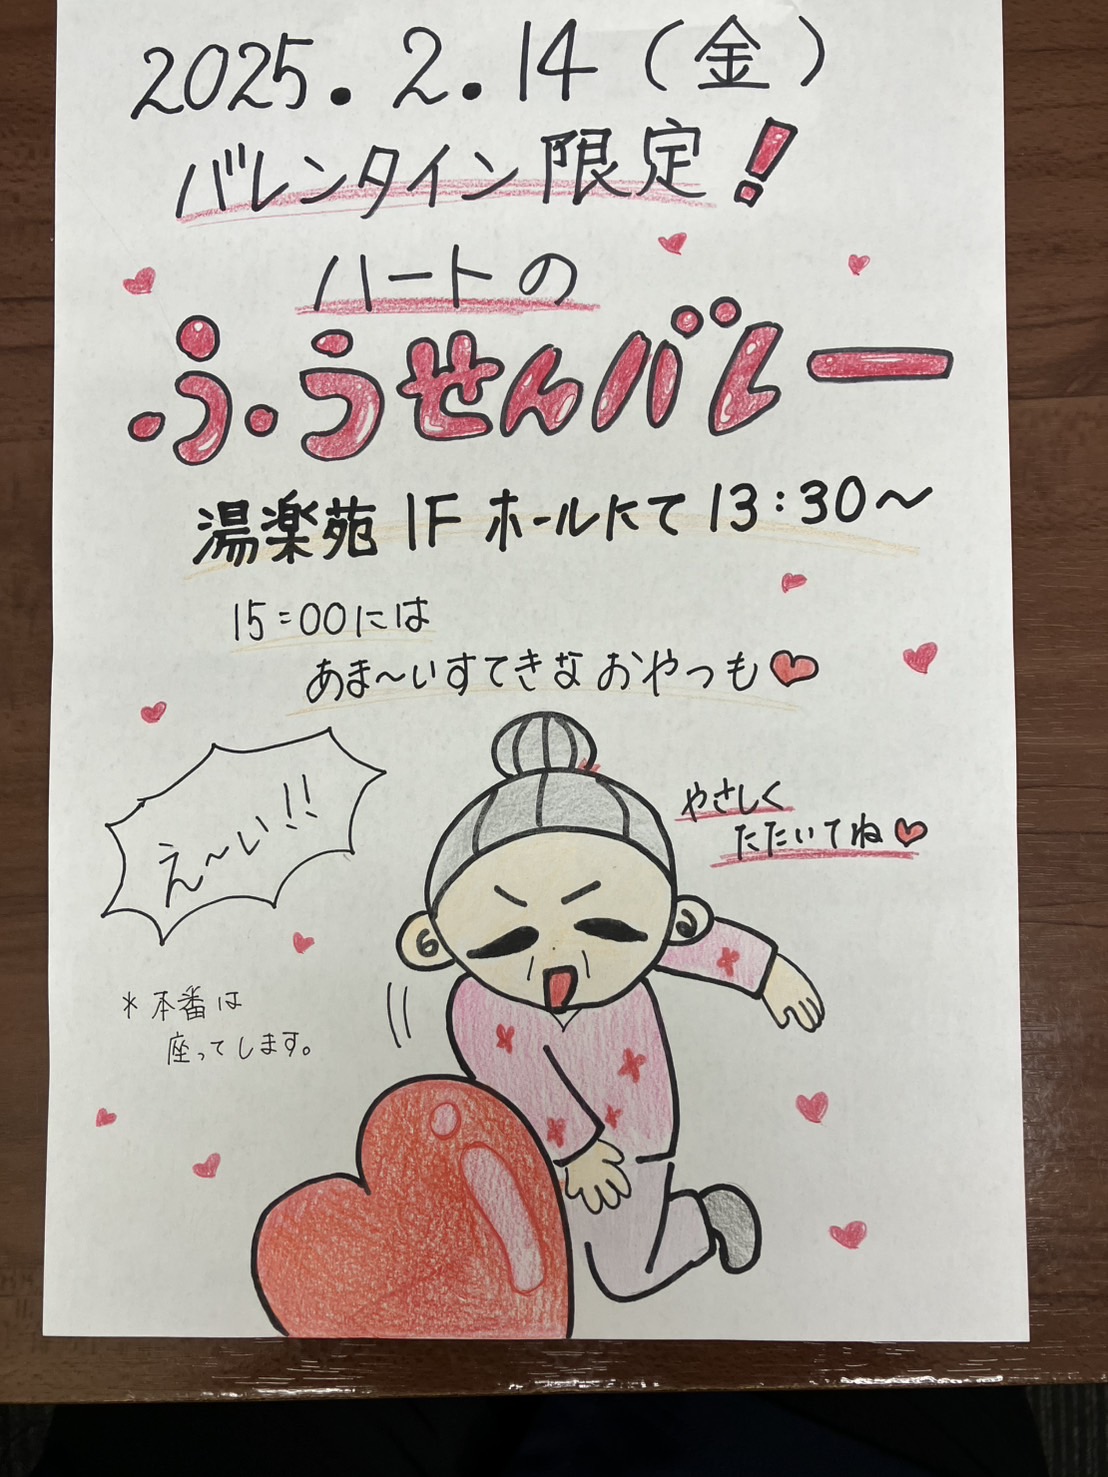 2025.2.14(金)
バレンタイン限定!
ハートの
ふうせんバレー
湯楽苑 1F ホールにて 13:30〜
15:00には
あま〜いすてきなおやつも♥
え〜い!!
やさしく
たたいてね♥
*本番は
座ってします。